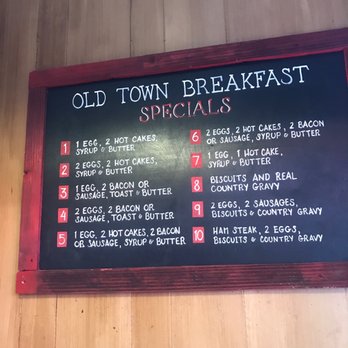 OLD TOWN BREAKFAST
SPECIALS
1 1 EGG, 2 HOT CAKES,
SYRUP & BUTTER
2 2 EGGS, 2 HOT CAKES,
SYRUP & BUTTER
3 1 EGG, 2 BACON OR
SAUSAGE, TOAST & BUTTER
4 2 EGGS, 2 BACON OR
SAUSAGE, TOAST & BUTTER
5 1 EGG, 2 HOT CAKES, 2 BACON
OR SAUSAGE, SYRUP & BUTTER
6 2 EGGS, 2 HOT CAKES, 2 BACON
OR SAUSAGE, SYRUP & BUTTER
7 1 EGG, 1 HOT CAKE,
SYRUP & BUTTER
8 BISCUITS AND REAL
COUNTRY GRAVY
9 2 EGGS, 2 SAUSAGES,
BISCUITS & COUNTRY GRAVY
10 HAM STEAK, 2 EGGS,
BISCUITS & COUNTRY GRAVY